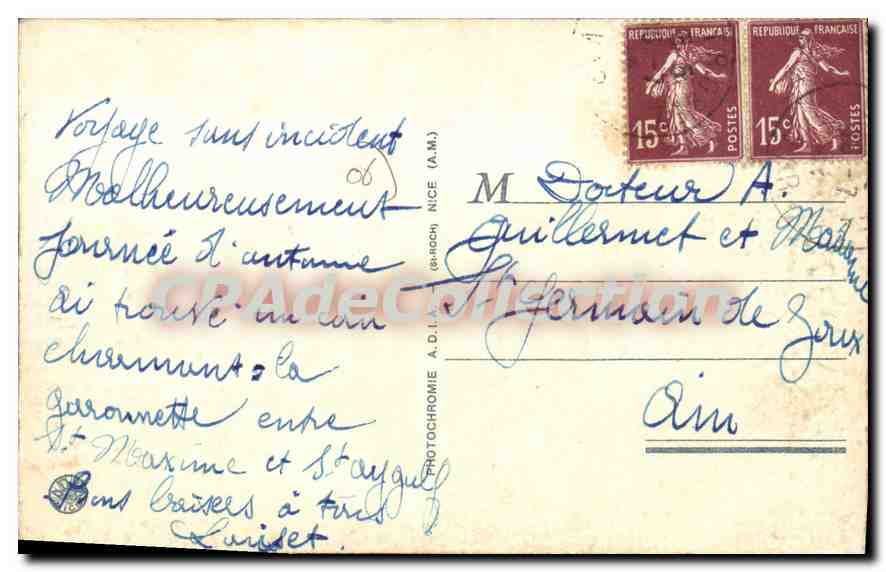 Voyage sans incident
Malheureusement
journée d'automne
ai trouvé un coin
charmant = la
garonnette entre
St Maxime et St aygulf
Bons baisers à tous
06
PHOTOCHROMIE A.D.I.A. (St-ROCH) NICE (A.M.)
REPUBLIQUE FRANÇAISE
15c
POSTES
REPUBLIQUE FRANÇAISE
15c
POSTES
M Docteur A.
Guillermet et Madame
St Germain de Joux
Ain
CPAdeCollection